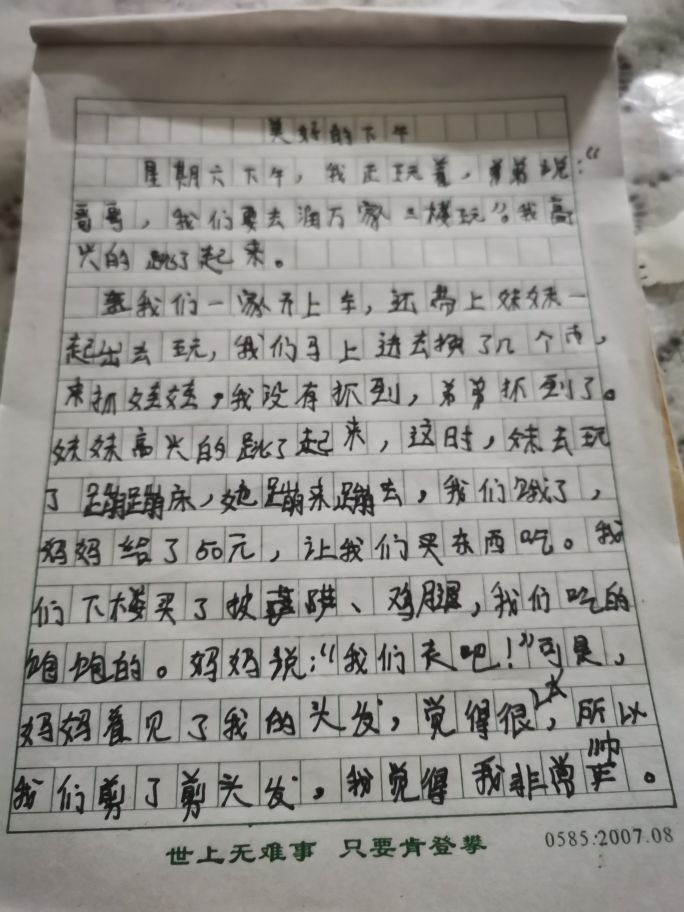 美好的下午
星期六下午，我正玩着，弟弟说：“
哥哥，我们要去润万家三楼玩”。我高
兴的跳了起来。
我们一家开上车，还带上妹妹一
起出去玩，我们马上进去换了几个币，
来抓娃娃，我没有抓到，弟弟抓到了。
妹妹高兴的跳了起来，这时，妹去玩
了蹦蹦床，她蹦来蹦去，我们饿了，
妈妈给了50元，让我们买东西吃。我
们下楼买了披萨、鸡腿，我们吃的
饱饱的。妈妈说：“我们走吧！”可是，
妈妈看见了我的头发，觉得很长，所以
我们剪了剪头发，我觉得我非常帅。
世上无难事 只要肯登攀 0585.2007.08